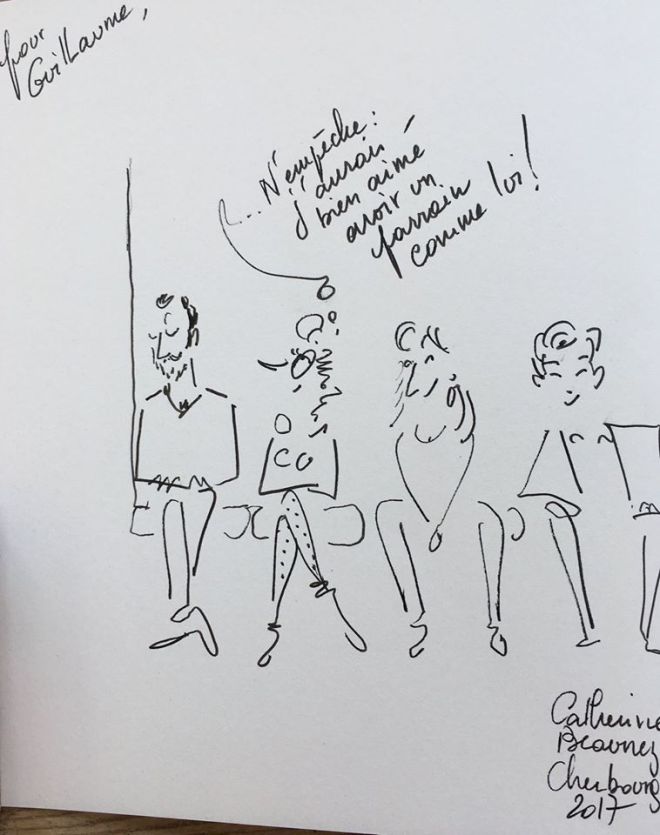 pour
Guillaume,
... N'empêche :
j'aurais
bien aimé
avoir un
parrain
comme lui !
Catherine
Beaunez
Cherbourg
2017